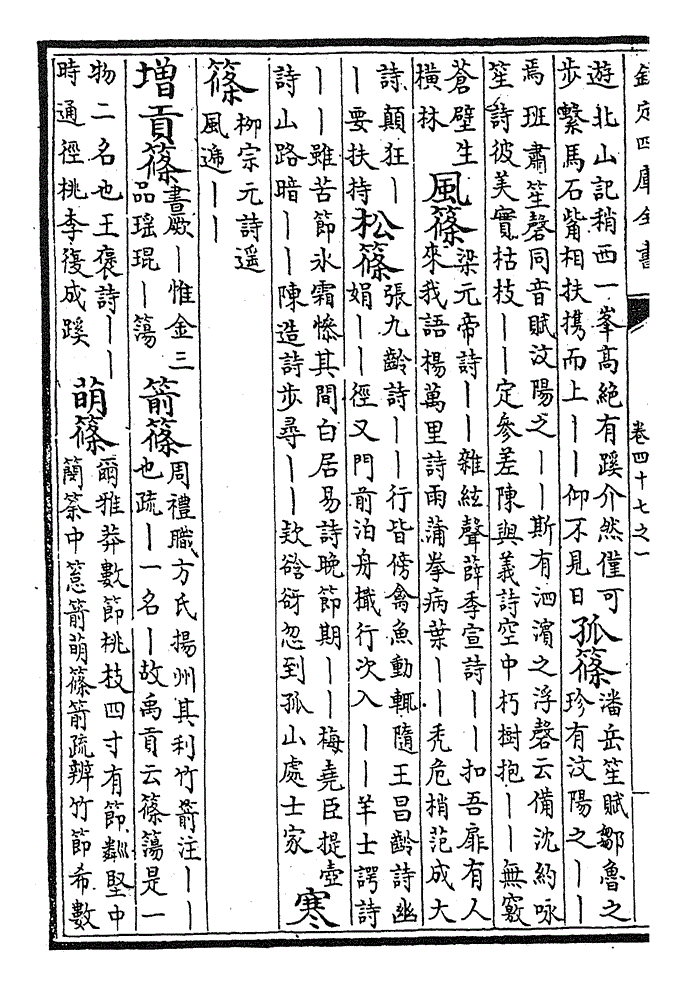 欽定四庫全書
卷四十七之一
遊北山記稍西一峯高絕有蹊介然僅可
步繫馬石觜相扶攜而上丨丨仰不見日
孤篠
潘岳笙賦鄒魯之
珍有汶陽之丨丨
焉班肅笙磬同音賦汶陽之丨丨斯有泗濱之浮磬云備沈約咏
笙詩彼美實枯枝丨丨定參差陳與義詩空中朽樹抱丨丨無竅
蒼壁生
橫林
風篠
梁元帝詩丨丨雜絃聲薛季宣詩丨丨扣吾扉有人
來我語楊萬里詩雨蒲拳病葉丨丨禿危梢范成大
詩顛狂丨
丨要扶持
松篠
張九齡詩丨丨行皆傍禽魚動輒隨王昌齡詩幽
娟丨丨徑又門前泊舟檝行次入丨丨羊士諤詩
丨丨雖苦節氷霜慘其間白居易詩晚節期丨丨梅堯臣提壺
詩山路暗丨丨陳造詩步尋丨丨欵谽谺忽到孤山處士家
寒
篠
柳宗元詩遥
風遞丨丨
增貢篠
書厥丨惟金三
品瑶琨丨簜
箭篠
周禮職方氏揚州其利竹箭注丨丨
也疏丨一名丨故禹貢云篠簜是一
物二名也王褒詩丨丨
時通徑桃李復成蹊
萌篠
爾雅莽數節桃枝四寸有節粼堅中
簢筡中箭萌篠箭疏辨竹節希數